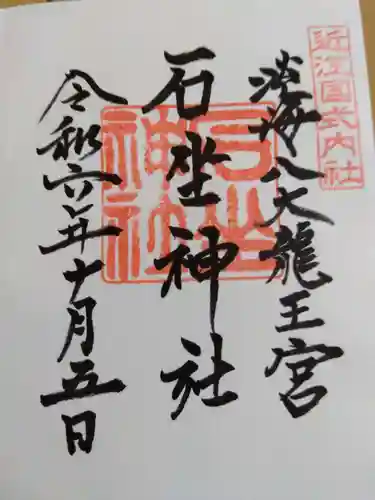 近江國式内社
淡海八大龍王宮
石坐神社
石坐神社
令和六年十月五日